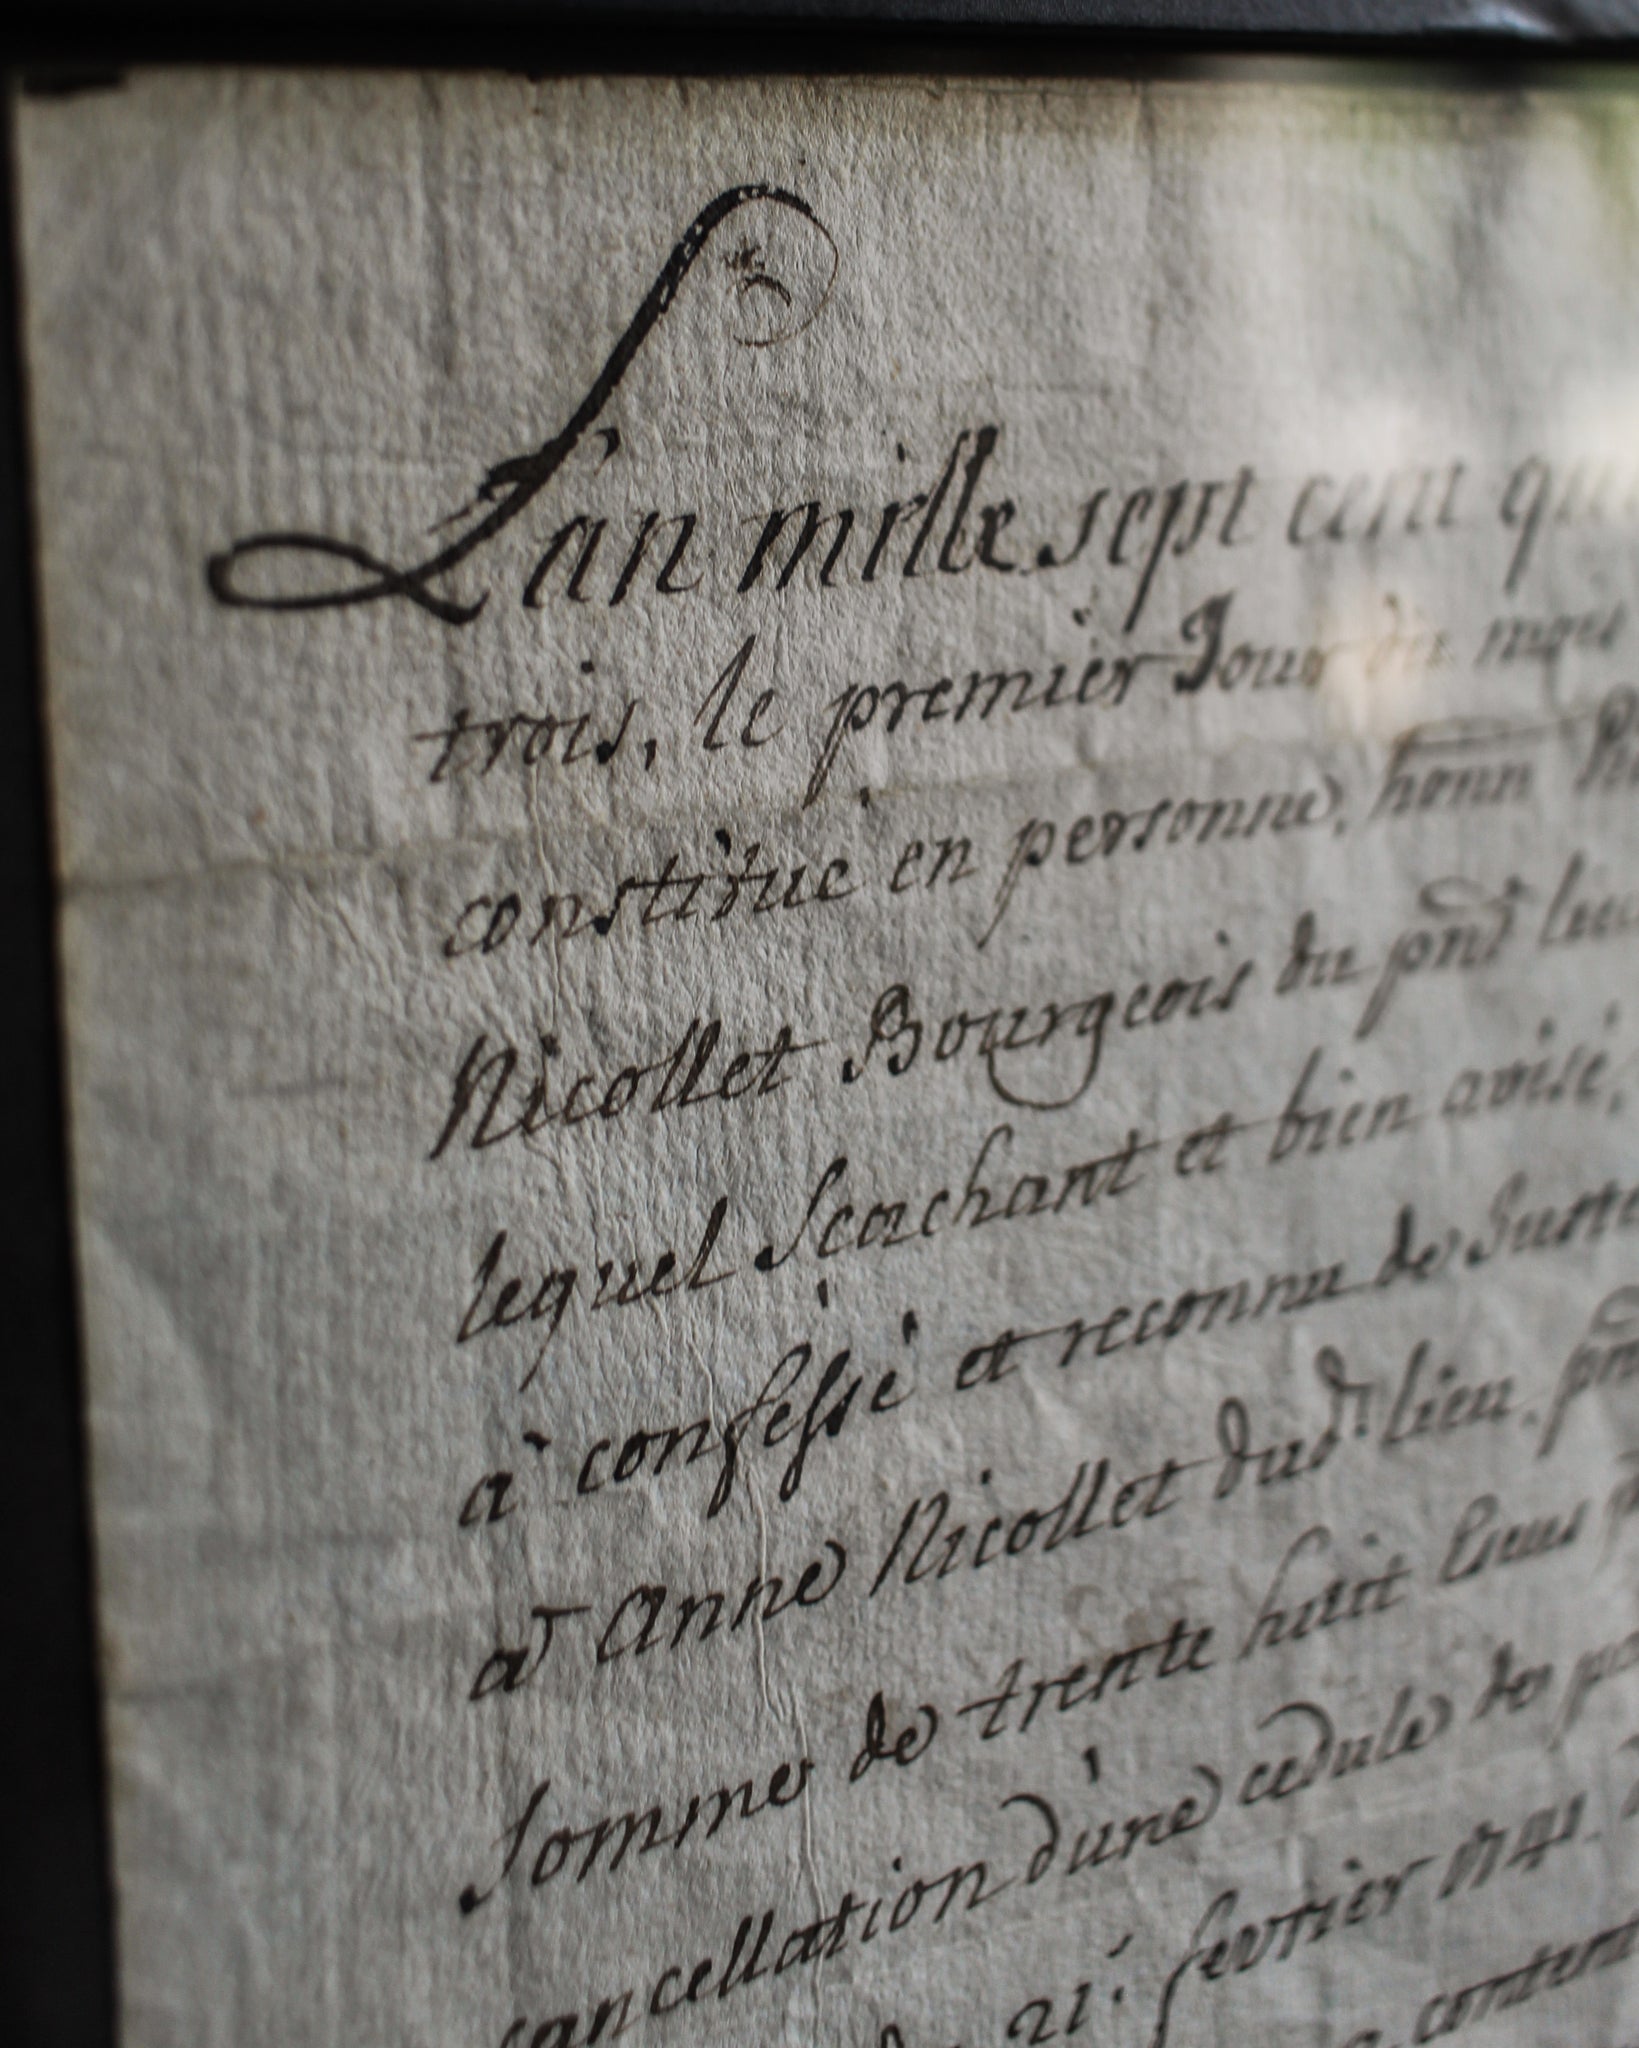 Lan mille sept cent qu
trois, le premier Jour du
constitué en personne, honn
Nicollet Bourgeois du pnt
lequel Scachant et bien avisé,
à confessé et reconnu de
à Anne Nicollet dud. lieu
Somme de trente huit
cancellation d'une cedule de
21. fevrier 1741